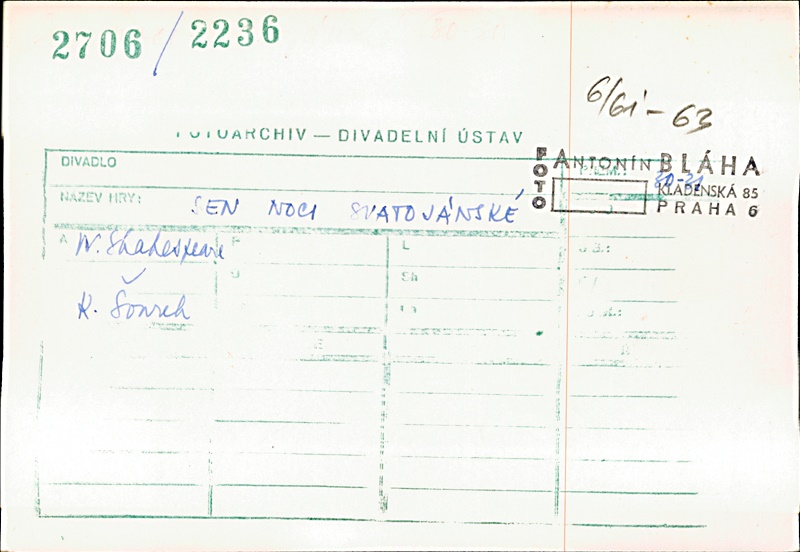 2706 / 2236
6/61-63
FOTOARCHIV — DIVADELNÍ ÚSTAV
FOTO ANTONÍN BLÁHA
KLADENSKÁ 85
PRAHA 6
DIVADLO
20-21
NÁZEV HRY: SEN NOCI SVATOJÁNSKÉ
A W. Shakespeare P L
D Sh
K. Sourek